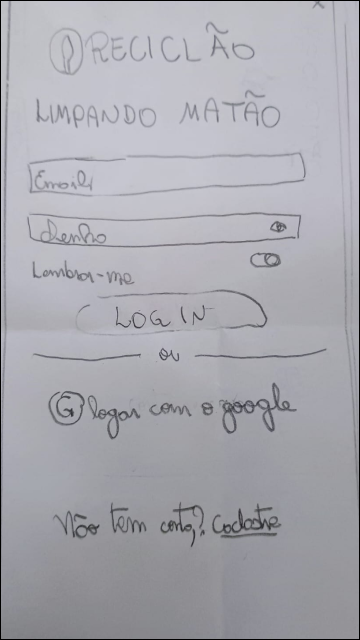 RECICLÃO
LIMPANDO MATÃO
Email
Senha
Lembrar-me
LOGIN
ou
G logar com o google
Não tem conta? Cadastre